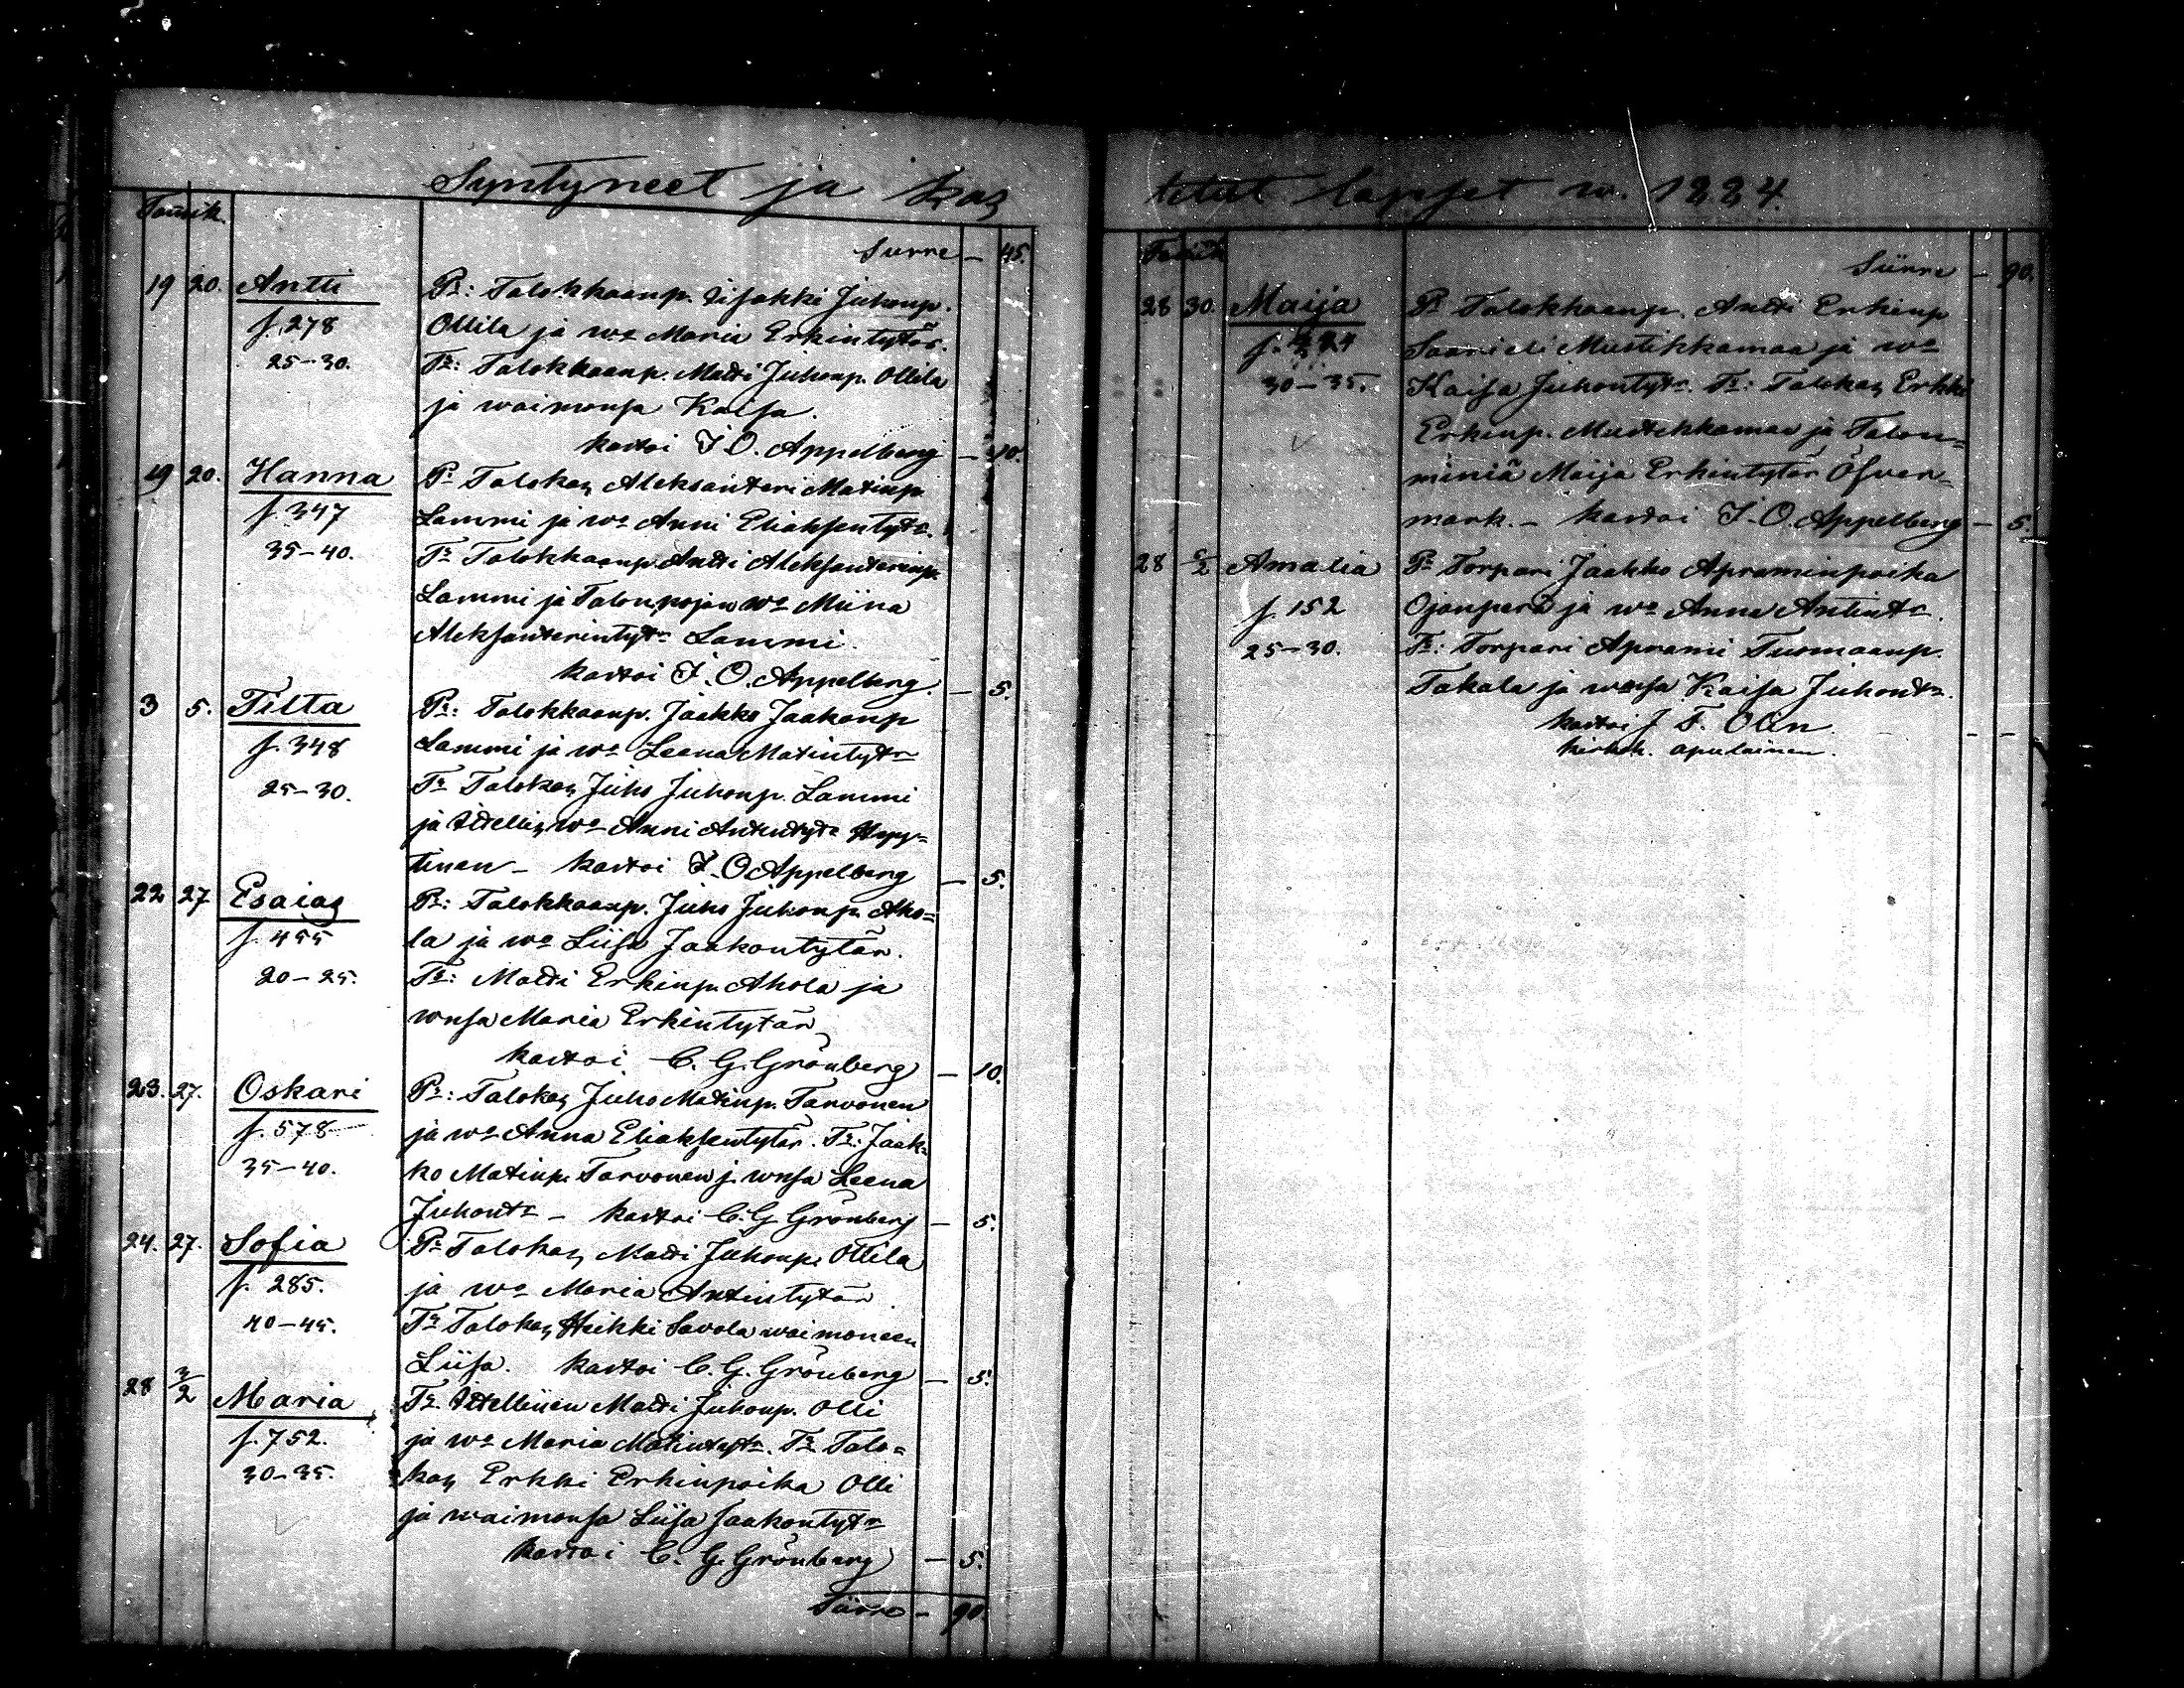 Syntyneet ja kas
Tammik.
Siirre — 45.
19 20. Antti P:r: Talokkaanp. Iisakki Juhonp.
f. 278 Ollila ja w:o Maria Erkintytär.
25–30. T:t: Talokkaanp. Matti Juhonp. Ollila
ja waimonsa Kaisa.
kastoi J. O. Appelberg — 10.
19 20. Hanna P:r Talokas Aleksanteri Matinp.
f. 347 Lammi ja w:o Anni Eliaksentyt:r
35–40. T:t Talokkaanp. Antti Aleksanterinp.
Lammi ja Talonpojan w:o Miina
Aleksanterintyt:r Lammi.
kastoi J. O. Appelberg. — 5.
3 5. Tilta P:r: Talokkaanp. Jaakko Jaakonp
f. 348 Lammi ja w:o Leena Matintyt:r
25–30. T:t Talokas Juho Juhonp. Lammi
ja Itellis w:o Anni Antintyt:r
kastoi J. O. Appelberg — 5.
22 27 Esaias P:r: Talokkaanp. Juho Juhonp. Aho=
f. 455 la ja w:o Liisa Jaakontytär.
20–25. T:t: Matti Erkinp. Ahola ja
wnsa Maria Erkintytär
kastoi C. G. Grönberg — 10.
23. 27. Oskari P:r: Talokas Juho Matinp. Tarvonen
f. 578 ja w:o Anna Eliaksentytär. T:t: Jaak=
35–40. ko Matinp. Tarvonen j. wnsa Leena
Juhont:r — kastoi C. G. Grönberg — 5.
24. 27. Sofia P:r Talokas Matti Juhonp. Ollila
f. 285. ja w:o Maria Antintytär
40–45. T:t Talokas Heikki Savola waimoneen
Liisa. kastoi C. G. Grönberg — 5.
28 3/2 Maria Itellinen Matti Juhonp. Olli
f. 752. ja w:o Maria Matintyt:r. T:t Talo=
30–35. kas Erkki Erkinpoika Olli
ja waimonsa Liisa Jaakontyt:r
kastoi C. G. Grönberg — 5.
Siirre — 90.
tetut lapset w. 1884.
Tammik
Siirre — 90.
28 30. Maija P:r Talokkaanp. Antti Erkinp
f. Saari eli Mustikkamaa ja w:o
30–35. Kaisa Juhontyt:r. T:t: Talokas Erkki
Erkinp. Mustikkamaa ja Talon=
miniä Maija Erkintytär Öfver=
mark. — kastoi J. O. Appelberg — 5.
28 Amalia P:r Torpari Jaakko Apraminpoika
f. 152 Ojanperä ja w:o Anna Antint:r.
25–30. T:t: Torpari Aprami Tuomaanp.
Takala ja wnsa Kaisa Juhont:r.
kastoi J. F. Olin — —
kirkoh. apulainen.